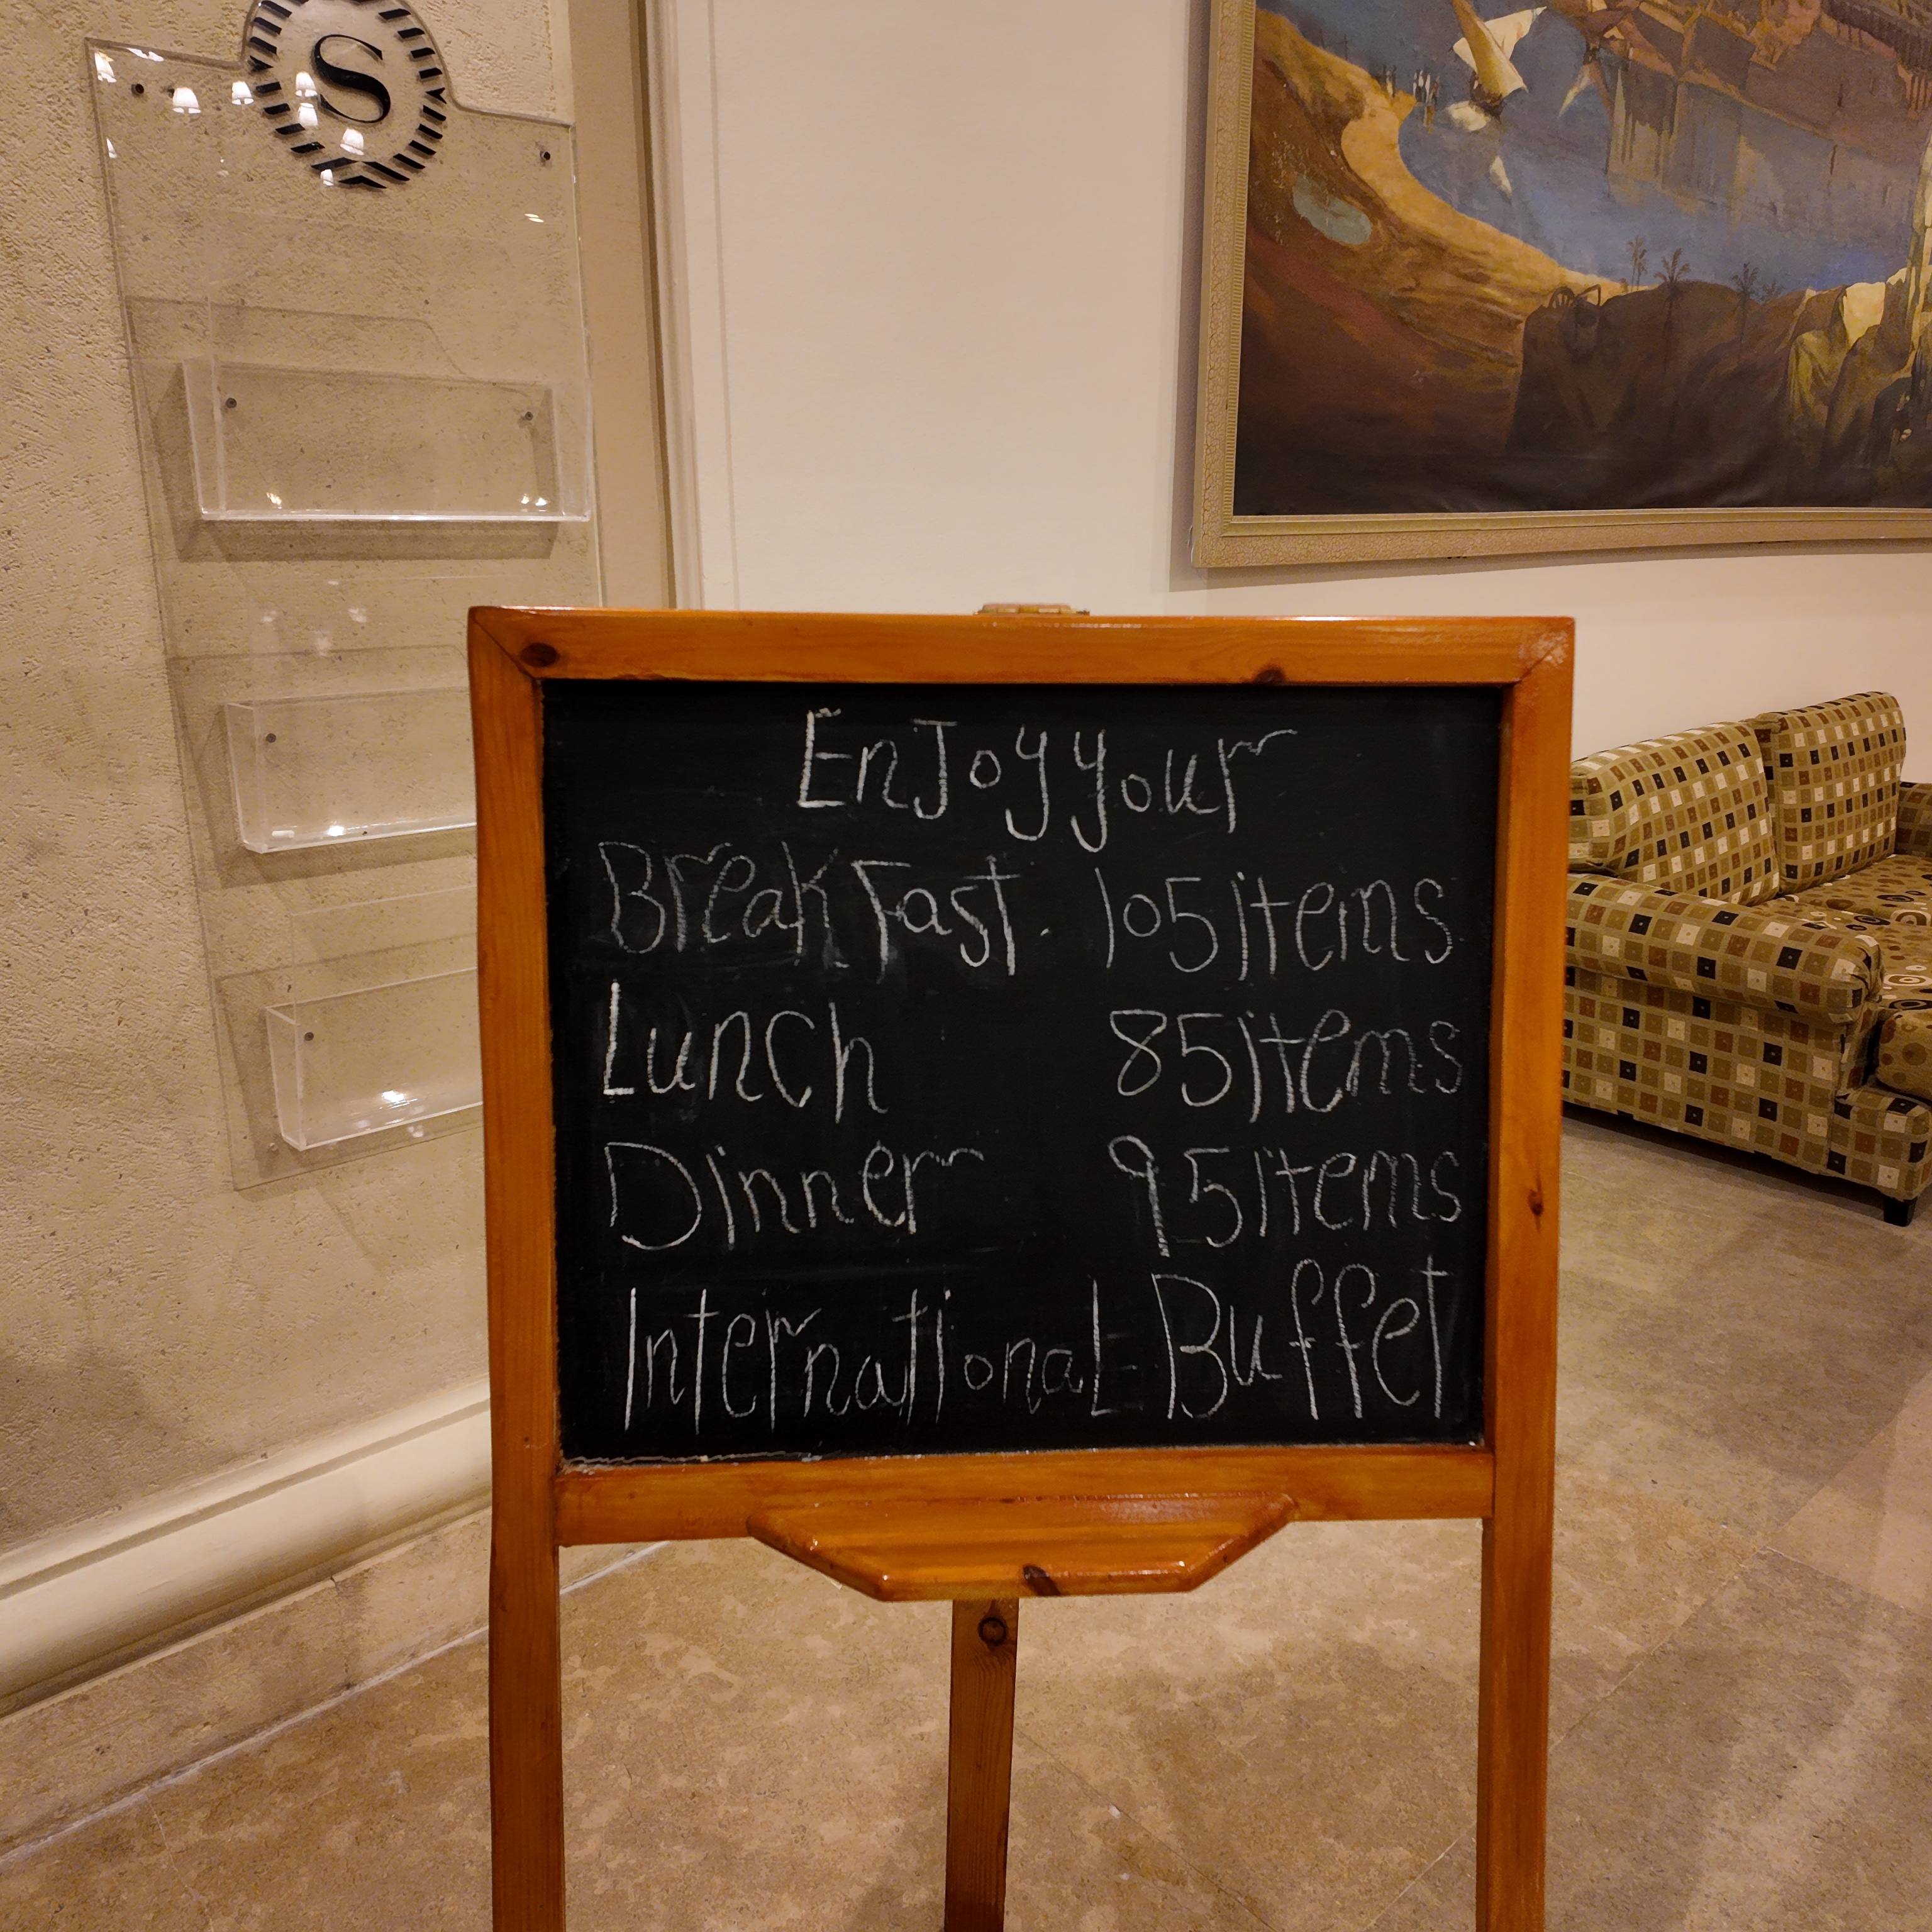 S
EnJoy your
BreakFast. 105 items
Lunch 85 items
Dinner 95 items
InternationaL Buffet